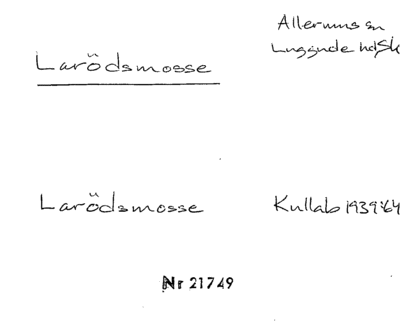 Larödsmosse
Allerums sn
Luggude hd Sk
Larödsmosse
Kullab 1939:64
Nr 21749